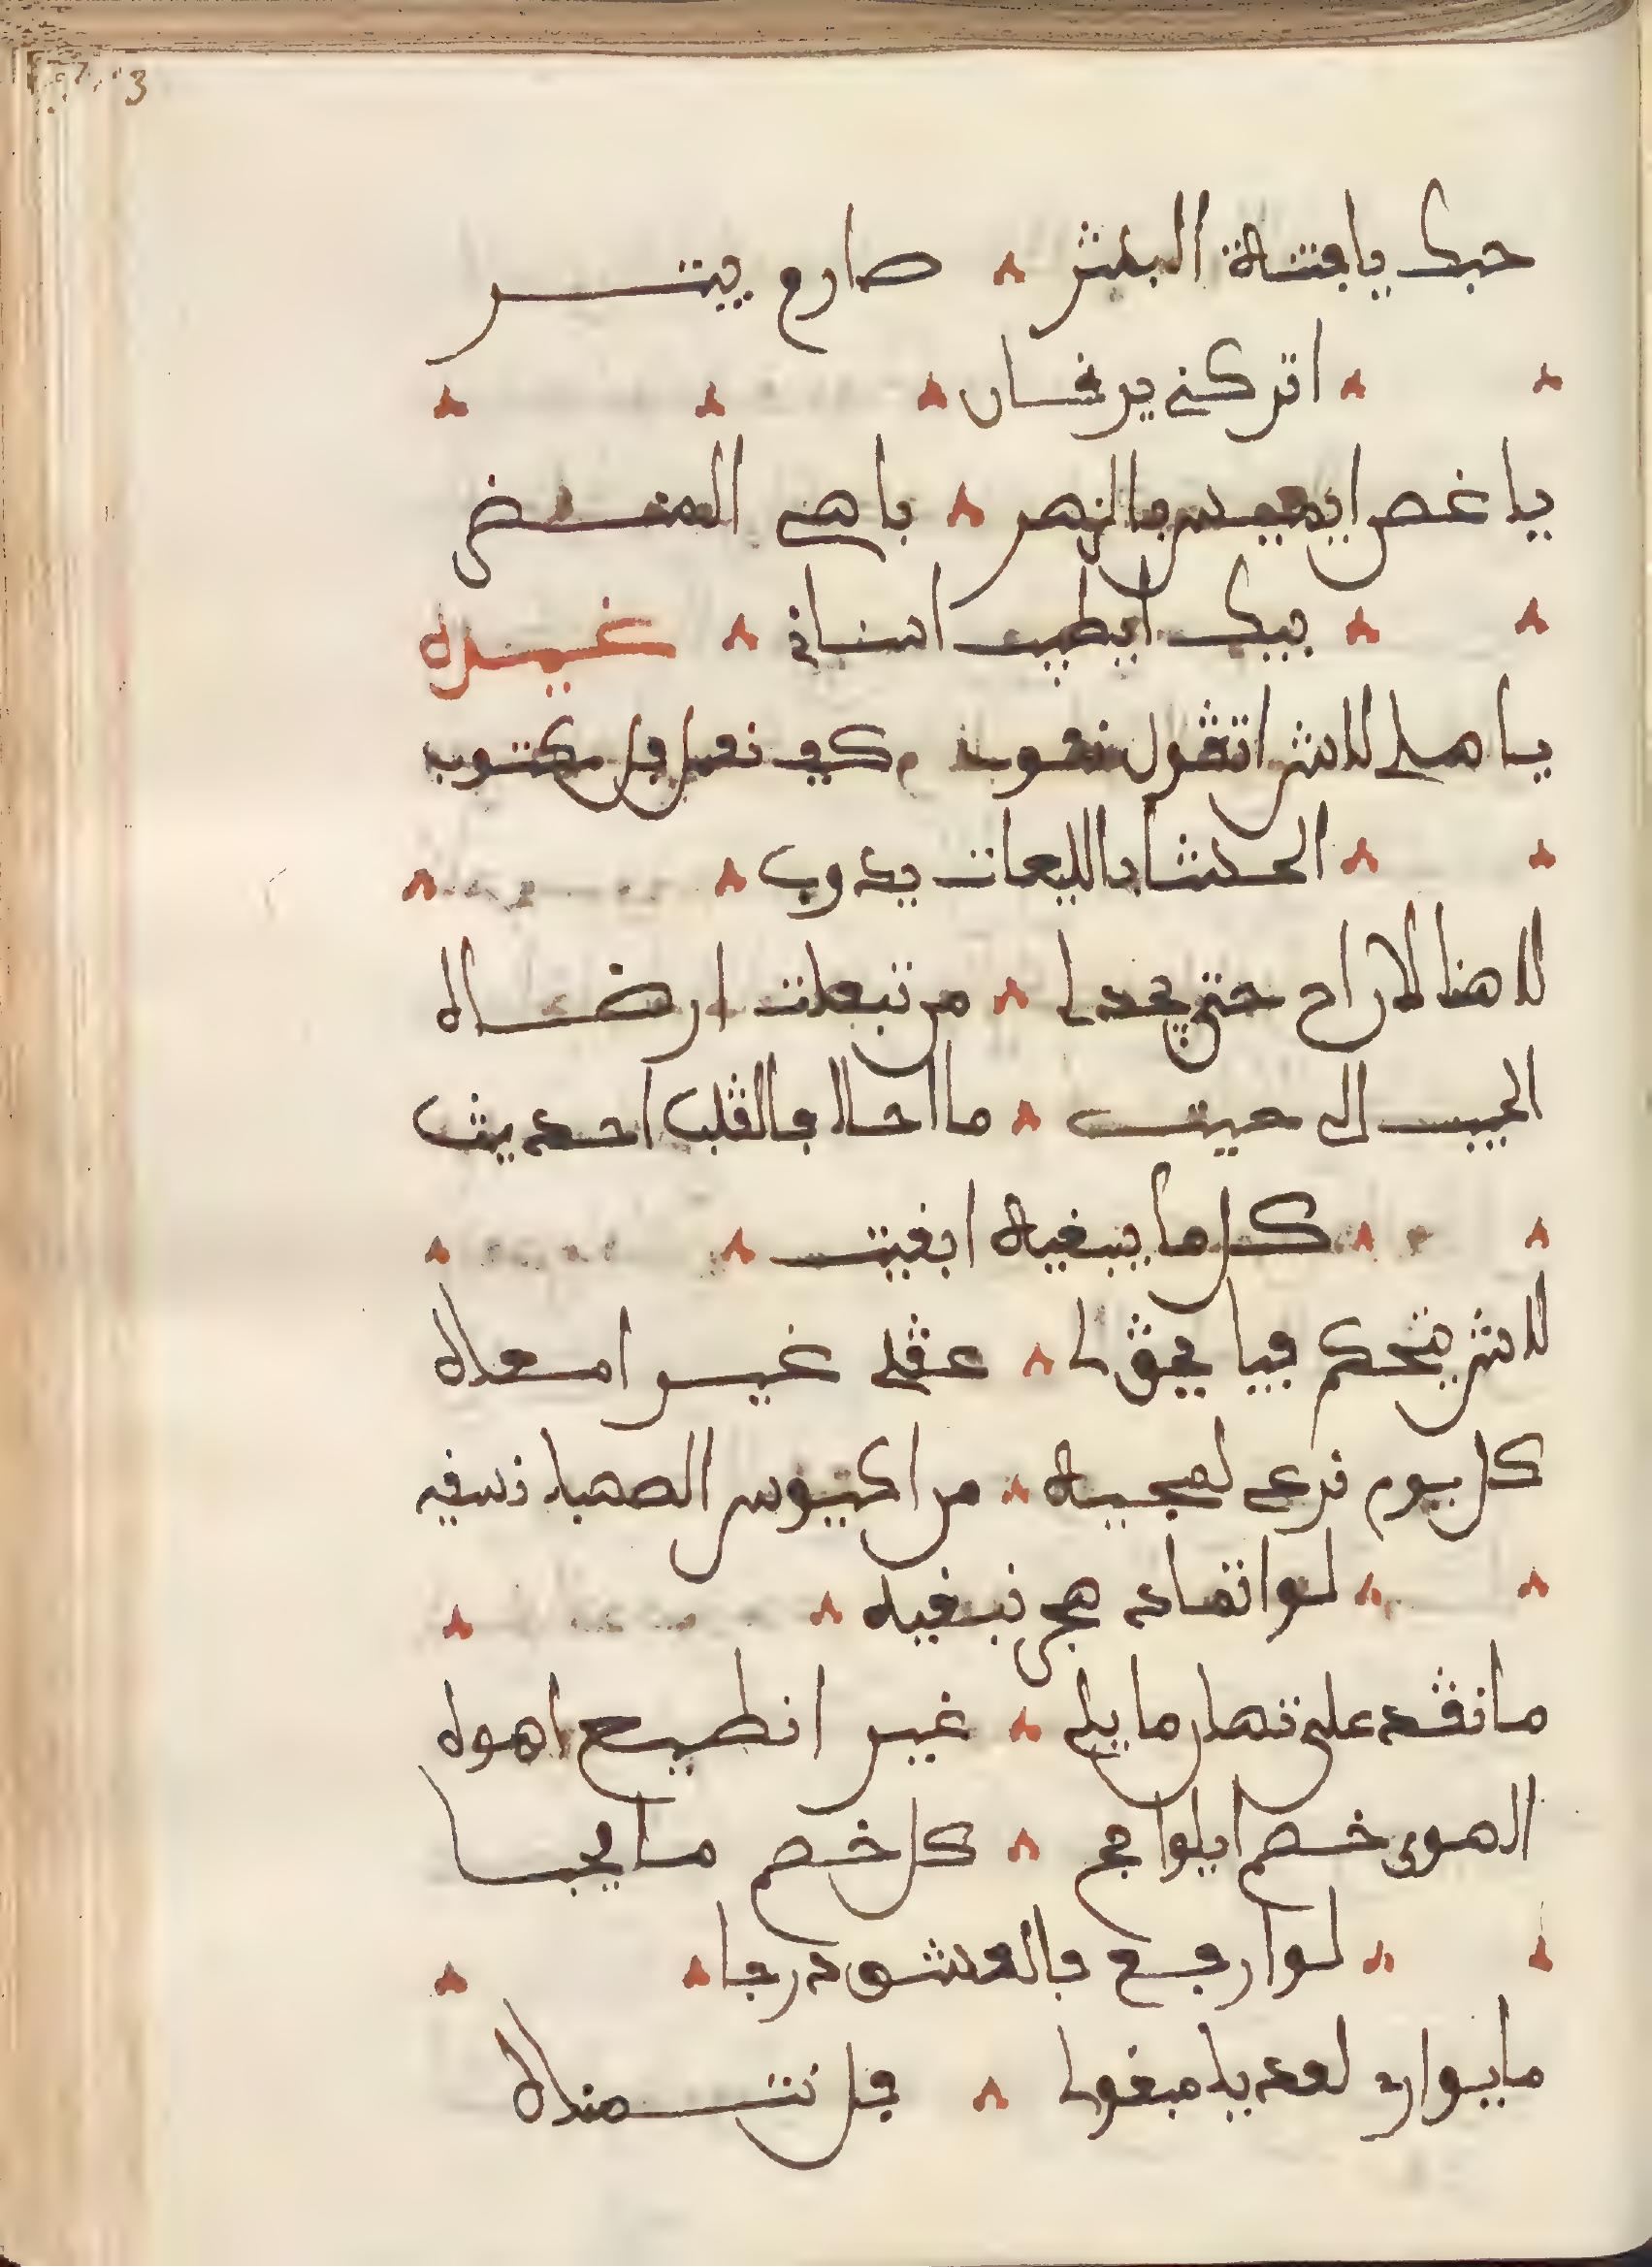 حبك يا فتنة البشر صارم يبتر
اتركني يرفسان
يا غصن ايميس بالزهر باهي المنض
بيك ايطيب اسناني غيره
يا هلي لاش اتڨول نعوب كيف نعمل في مكتوب
الحشا باالليعات يدوب
لا هنا لا راح حتى يحدا من تبعات ارضاه
الحبيب الى حبيت ما احلا فالڨلب احديث
كل ما يبغيه ابغيت
لاش يتحكم فيا يڨوا عڨلي غير امعاه
كل يوم نرعى لعجيبه من اكيوس الصهبا نسفيه
لو اتمادى هجري نبغيه
ما نڨد على نهار ما يلي غير انطيع اهواه
الهوى خصم ايلواجج كل خصم ما يجبا
لو ارفع فالعشق درجا
ما يواري لعد يا مبغوا في تتمناه